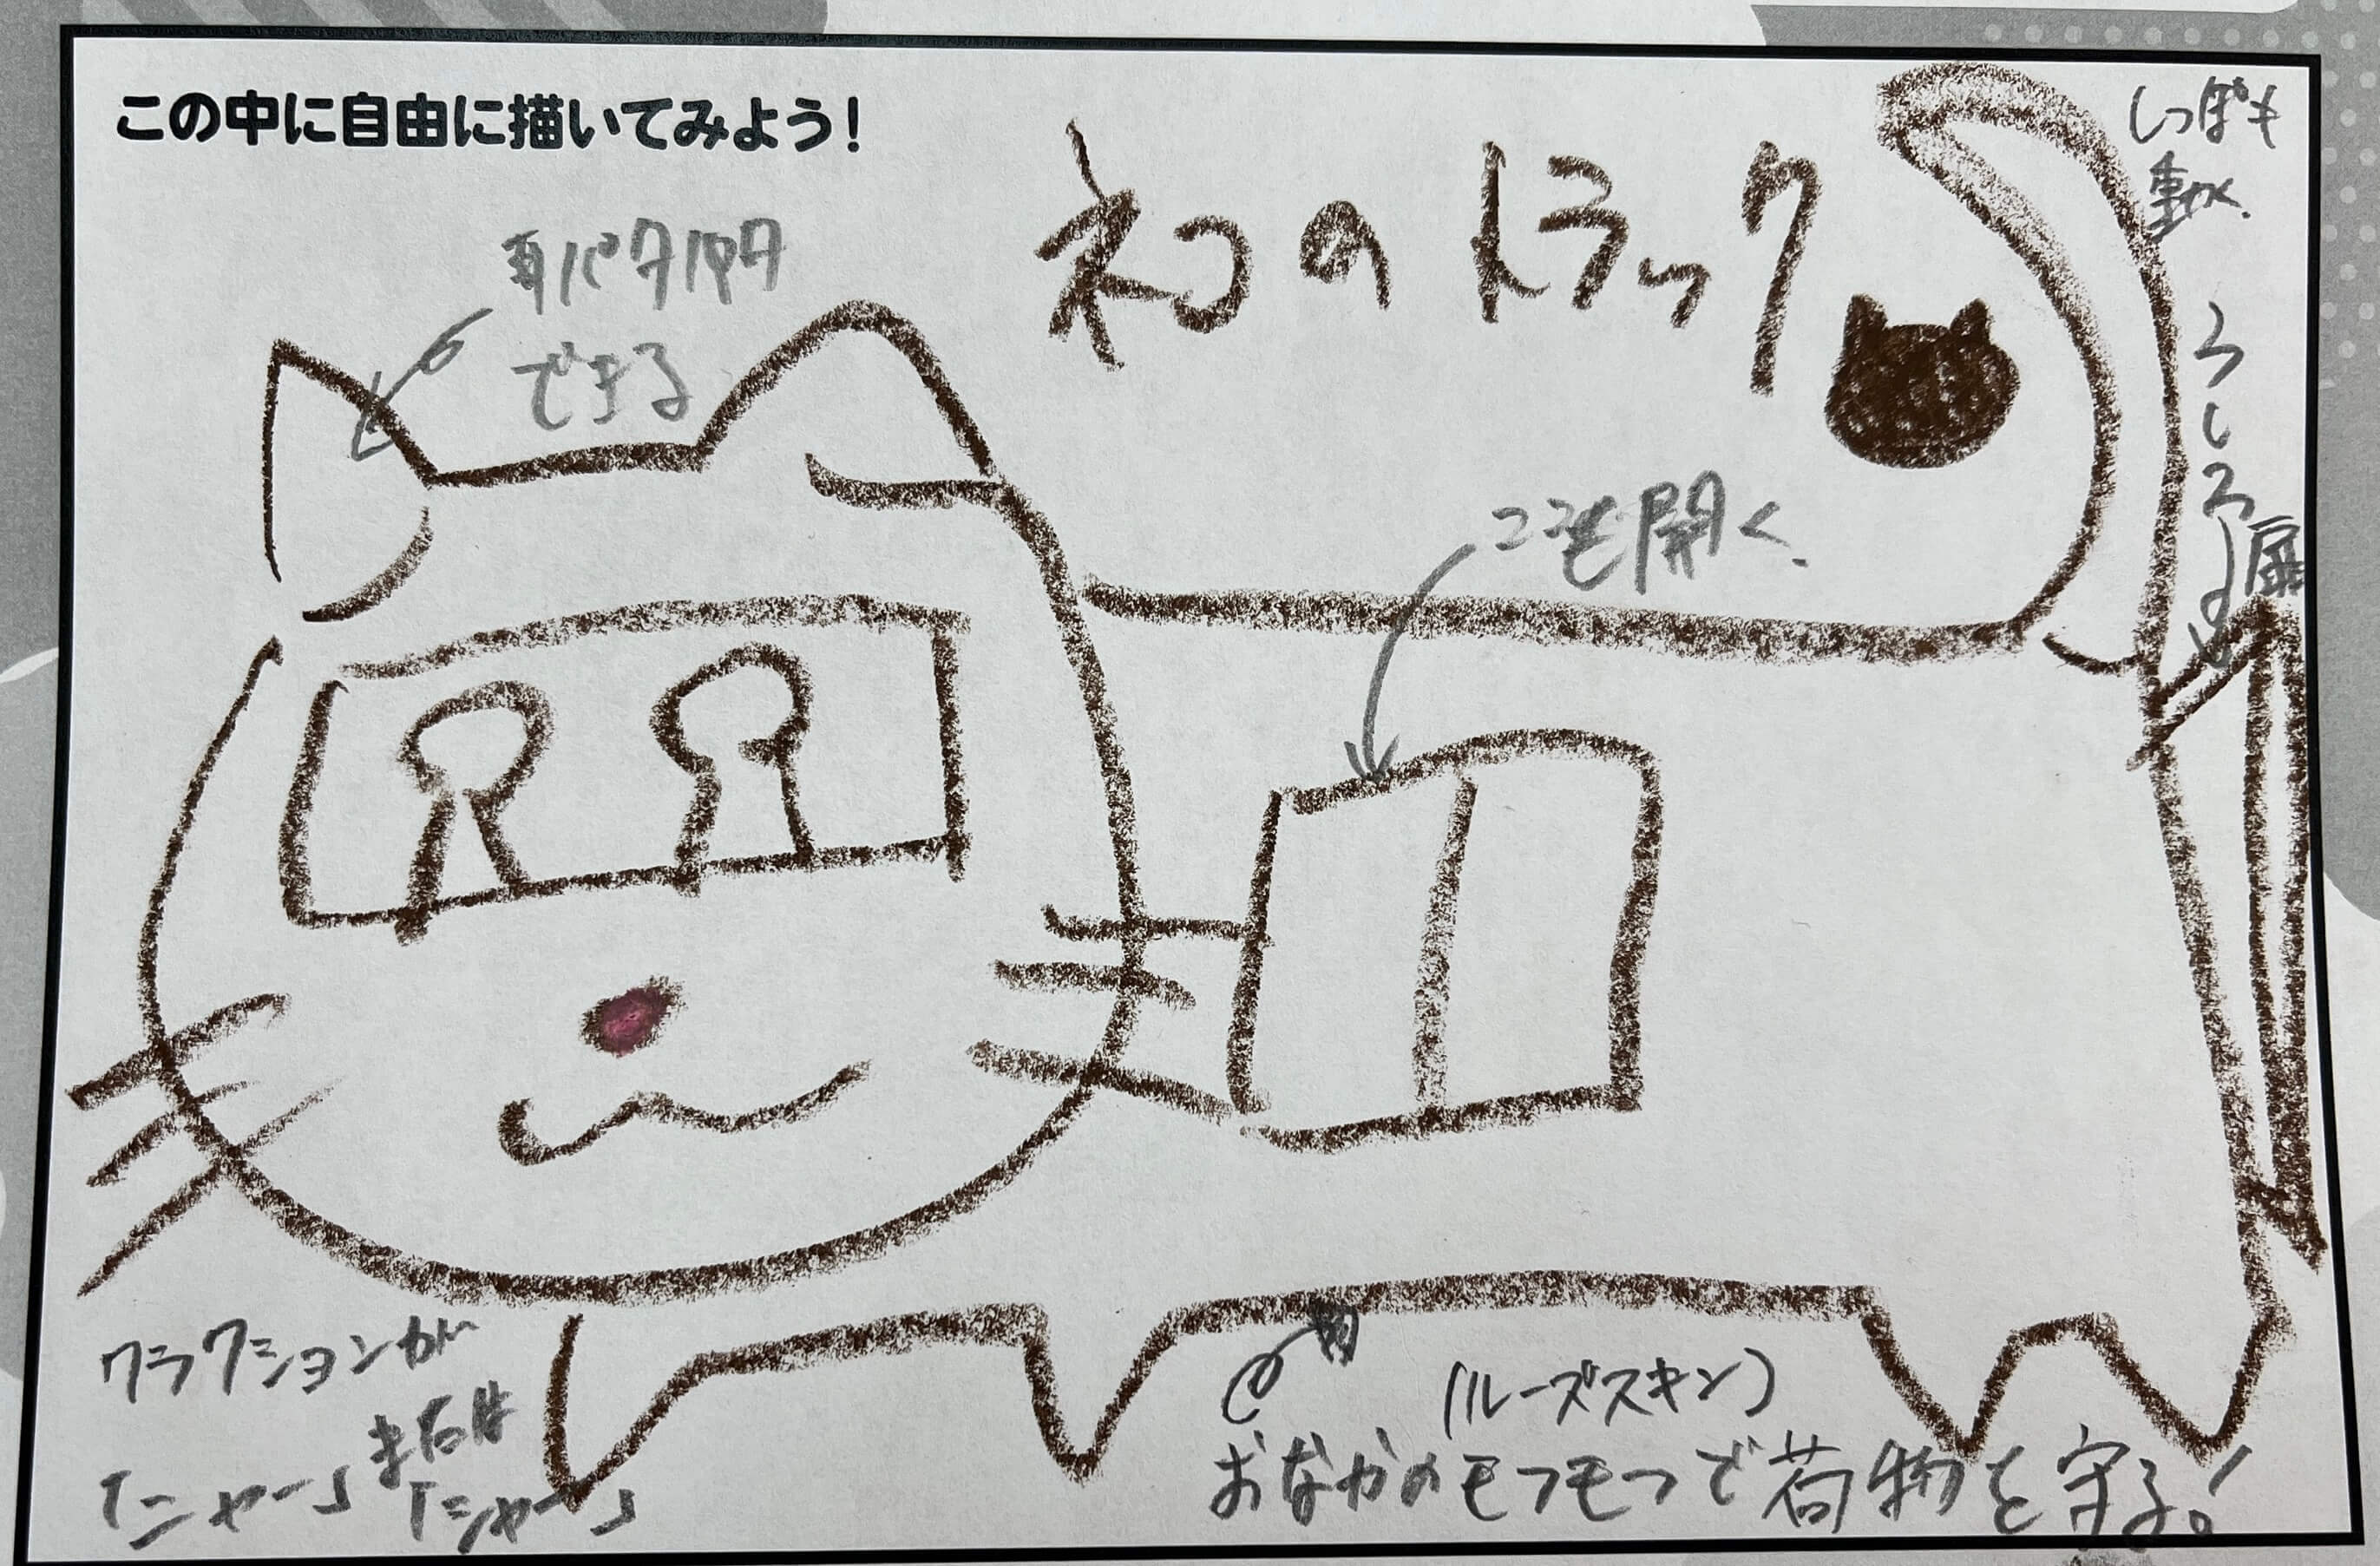 この中に自由に描いてみよう!
ネコのトラック
しっぽも
動く.
耳パタパタ
できる
ここも開く.
うしろ
扉
クラクションが
「ニャー」または「シャー」
(ルーズスキン)
おなかのモフモフで荷物を守る!